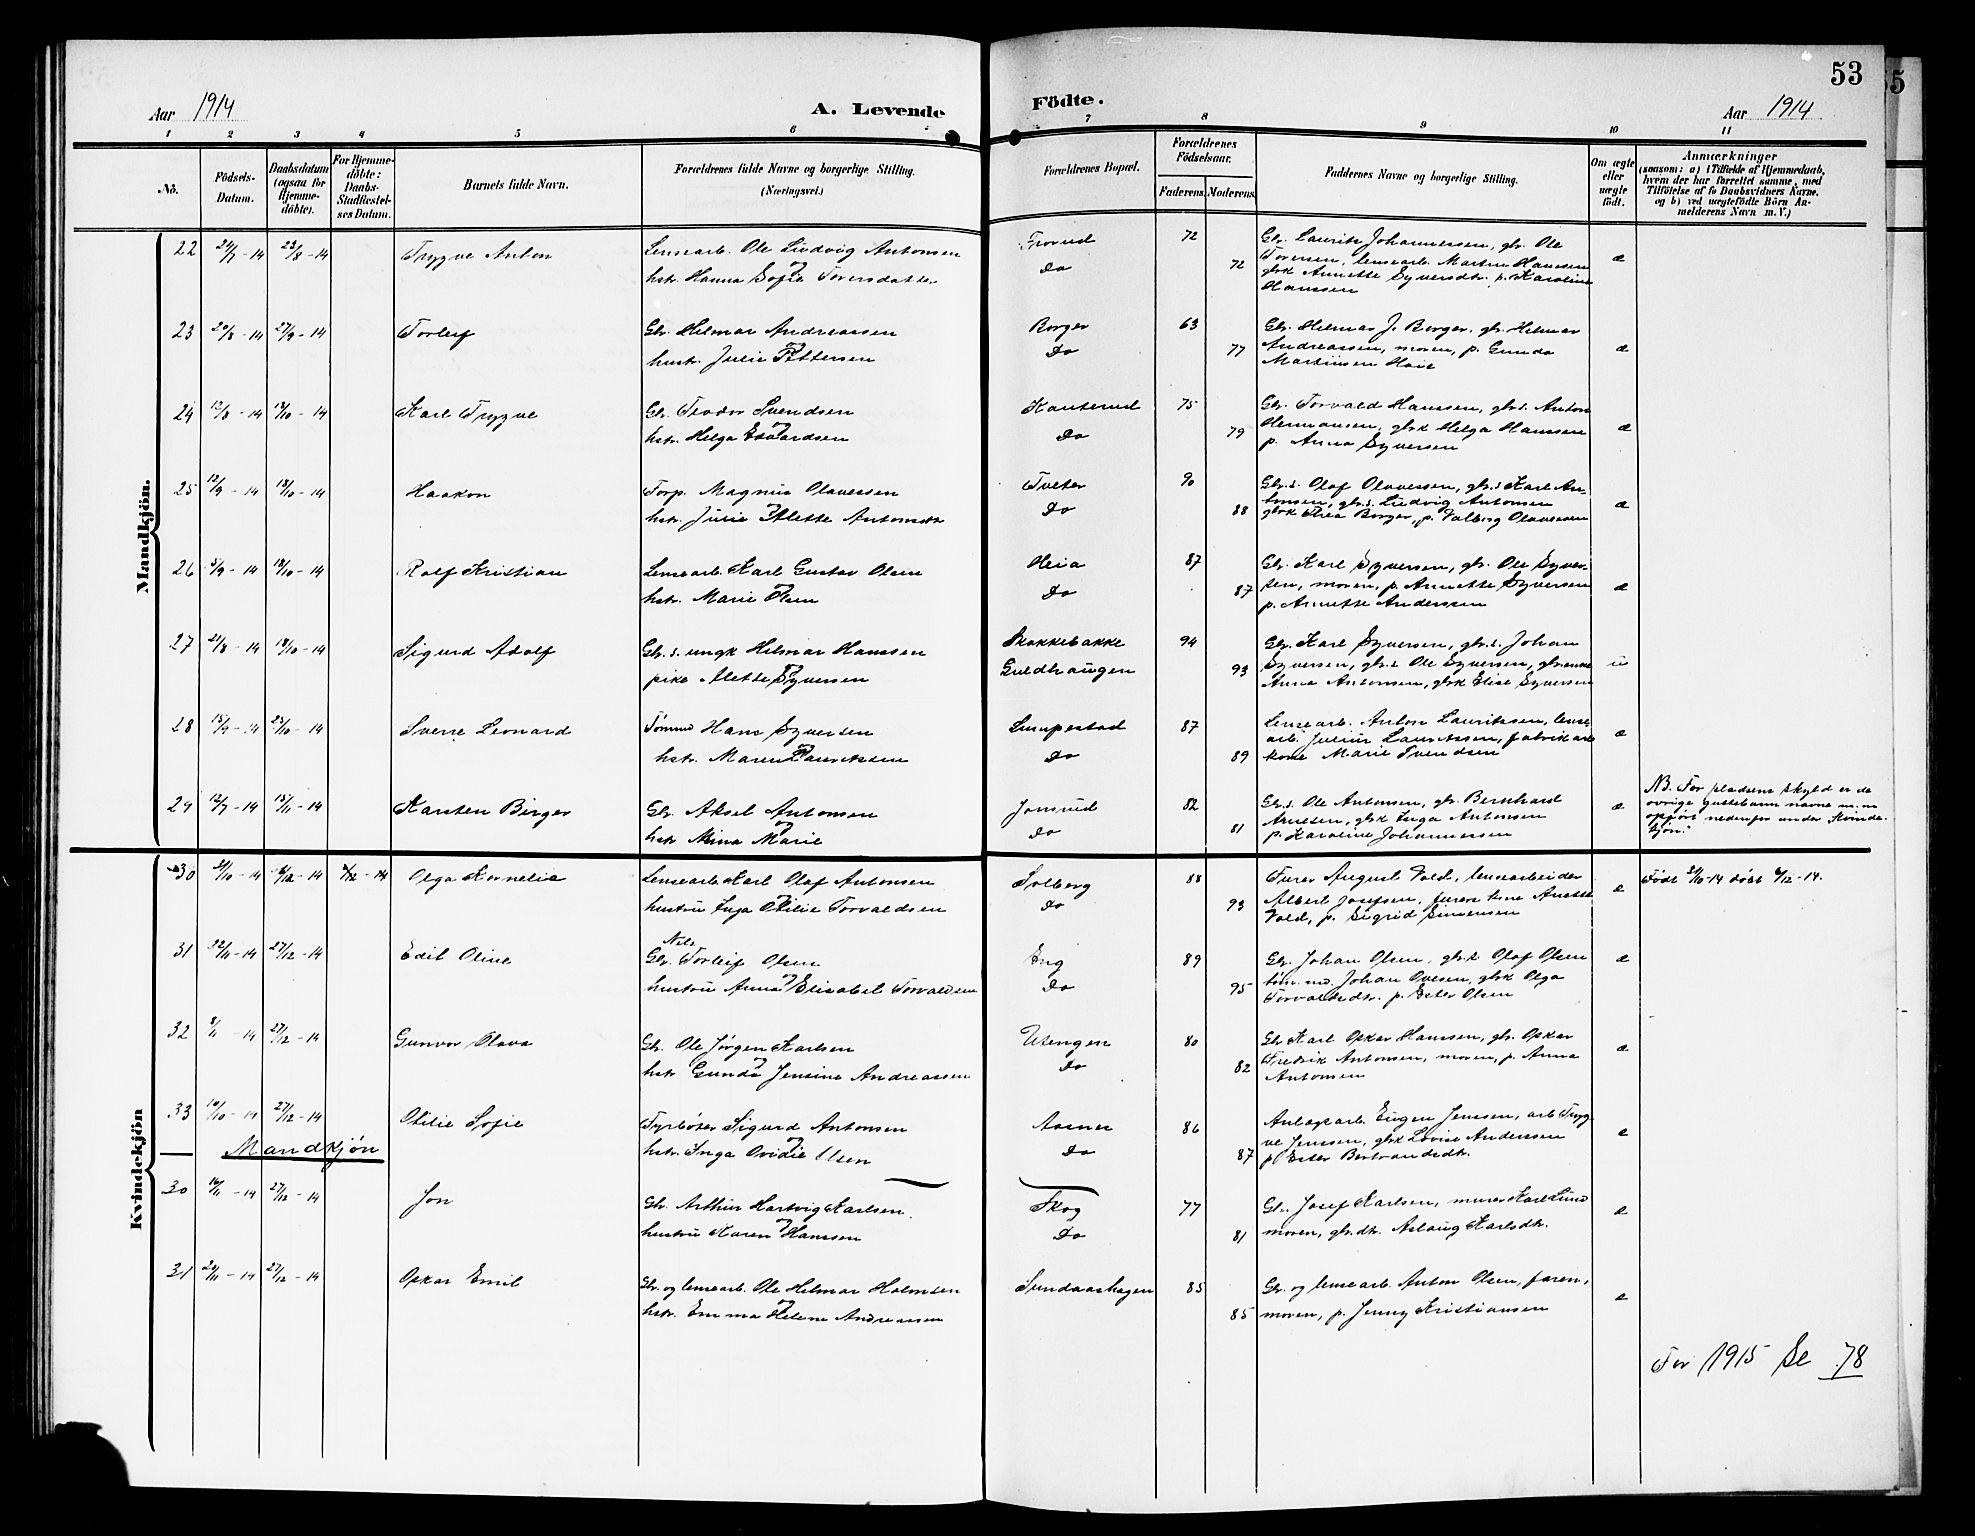 53
Aar 1914
A. Levende Födte.
Aar 1914
1 2 3 4 5 6 7 8 9 10 11
No.
Födsels-Datum.
Daabsdatum (ogsaa for Hjemmedöbte).
For Hjemmedöbte: Daabs-Stadfæstelses Datum.
Barnets fulde Navn.
Forældrenes fulde Navne og borgerlige Stilling. (Næringsvei.)
Forældrenes Bopæl.
Forældrenes Födselsaar.
Faderens. Moderens.
Faddernes Navne og borgerlige Stilling.
Om ægte eller uægte födt.
Anmærkninger
(saasom: a) i Tilfælde af Hjemmedaab, hvem der har forrettet samme, med Tilföielse af to Daabsvidners Navne, og b) ved uægtefödte Börn Anmelderens Navn m. V.)
Mandkjön.
22 24/7 - 14 23/8 - 14 Trygve Anton
Lensearb. Ole Ludvig Antonsen
og
hstr. Hanna Sofie Toresdatter
Frorud 72
Do 72
Gbr. Laurits Johannessen, gbr. Ole
Toresen, lensearb. Martin Hanssen
gbrk Annette Syversdtr. p. Karoline
Hanssen
æ
23 20/8 - 14 27/9 - 14 Torleif
Gbr. Helmar Andreassen
og
hustr. Julie Pettersen
Borger 63
Do 77
Gbr. Helmar J. Borger, gbr. Helmar
Andreassen, moren, p. Gunda
Martinsen Hoie
æ
24 12/8 - 14 18/10 - 14 Karl Trygve
Gbr. Teodor Svendsen
og
hstr. Helga Edvardsen
Kanterud 75
Do 79
Gbr. Torvald Hanssen, gbr.s. Anton
Hermansen, gbrk Helga Hanssen
p. Anna Syversen
æ
25 12/9 - 14 18/10 - 14 Haakon
Torp. Magnus Olavessen
og
hstr. Julie Alette Antonsdtr
Tveter 90
Do 88
Gbr.s. Olaf Olavessen, gbr.s Karl An-
tonsen, gbr.s. Ludvig Antonsen
gbrk Thea Borger, p. Valborg Olavessen
æ
26 5/9 - 14 18/10 - 14 Rolf Kristian
Lensearb. Karl Gustav Olsen
og
hstr. Marie Olsen
Heia 87
Do 87
Gbr. Karl Syversen, gbr. Ole Syver-
sen, moren, p. Annette Syversen
p. Annette Anderssen
æ
27 21/8 - 14 18/10 - 14 Sigurd Adolf
Gbr.s. ungk Helmar Hanssen
og
pike Alette Syversen
Skakkebakke 94
Guldhaugen 93
Gbr. Karl Syversen, gbr.s. Johan
Syversen, gbr.s Ole Syversen, gbr.enke
Anna Antonsen, gbrk Elise Syversen
u
28 15/9 - 14 25/10 - 14 Sverre Leonard
Tömmd Hans Syversen
og
hstr. Maren Lauritssen
Limpestad 87
Do 89
Lensearb. Anton Lauritssen, lense-
arb. Julius Lauritssen, fabrikarb
kone Marie Svendsen
æ
29 12/9 - 14 15/11 - 14 Karsten Birger
Gbr. Aksel Antonsen
og
hstr. Mina Marie
Jonsrud 82
Do 81
Gbr.s. Ole Antonsen, gbr. Bernhard
Arnesen, gbrk Inga Antonsen
p. Karoline Johannessen
æ
NB. For pladsens skyld er de
övrige guttebarns navne m.m
oppfört nedenfor under Kvinde-
kjön.
Kvindekjön
30 21/10 - 14 6/12 - 14 6/12 - 14 Olga Kornelia
Lensearb Karl Olaf Antonsen
og
hustru Inga Otilie Torvaldsen
Solberg 88
Do 93
Furer August Vold, lensearbeider
Albert Josefsen, furers kone Anette
Vold, p. Sigrid Simensen
æ
Födt 21/10 - 14 döbt 6/12 - 14.
31 22/11 - 14 27/12 - 14 Edil Oline
Nils
Gbr. Torleif Olsen
og
hustru Anna Elisabet Torvaldsen
Eng 89
Do 95
Gbr. Johan Olsen, gbr.s Olaf Olsen
töm.md. Johan Ovesen, gbrk Olga
Torvaldsdtr. p. Ester Olsen
æ
32 8/11 - 14 27/12 - 14 Gunvor Olava
Gbr. Ole Jörgen Karlsen
og
hstr Gunda Jensine Andreassen
Utengen 80
Do 82
Gbr Karl Oskar Hanssen, gbr. Oskar
Fredrik Antonsen, moren, p. Anna
Antonsen
æ
33 10/10 - 14 27/12 - 14 Otilie Sofie
Fyrböter Sigurd Antonsen
og
hstr. Inga Ovidie Olsen
Aasnes 86
Do 87
Anlægsarb. Eugen Jenssen, arb Tryg-
ve Jenssen, gbrk Lovise Anderssen
p Ester Bertrandsdtr.
æ
Mandkjön
30 16/11 - 14 27/12 - 14 Jon
Gbr. Arthur Hartvig Karlsen
og
hustru Karen Hanssen
Skog 77
Do 81
Gbr. Josef Karlsen, murer Karl Lund
moren, gbr.dtr. Aslaug Karlsdtr.
æ
31 20/11 - 14 27/12 - 14 Oskar Emil
Gbr. og lensearb. Ole Helmar Holmsen
og
hstr. Emma Helene Andreassen
Sundaashagen 85
85
Gbr. og lensearb. Anton Olsen, faren,
moren, p. Jenny Kristiansen
æ
For 1915 Se 78